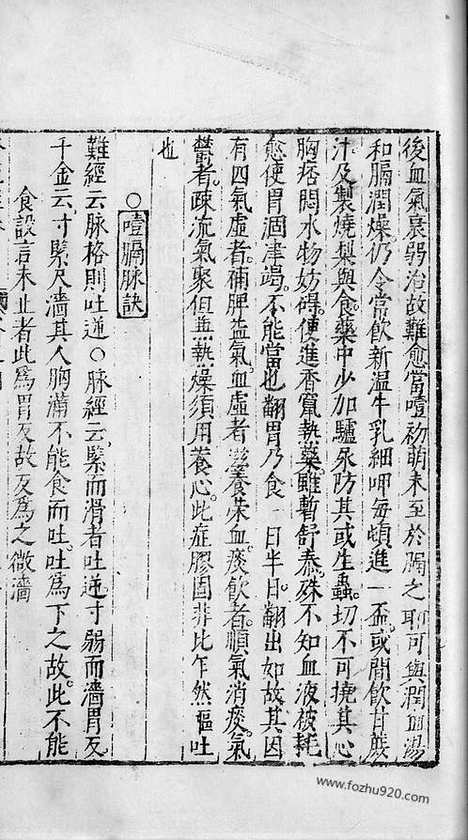 後血氣衰弱治故難愈當噎初萌未至於膈之聊可與潤血湯
和膈潤燥仍令常飲新溫牛乳細呷每頓進一盃或間飲甘蔗
汁及製燒梨與食藥中少加驢尿防其或生蟲切不可撓其心
胸痞悶水物妨碍便進香竄熱藥雖暫舒泰殊不知血液被耗
愈使胃涸津竭不能當也翻胃乃食一日半日翻出如故其因
有四氣虛者補脾益氣血虛者滋養榮血痰飲者順氣消痰氣
鬱者疎流氣聚但無熱燥須用養心此症膠固非比乍然嘔吐
也
○噎膈脉訣
難經云脉格則吐逆○脉經云緊而滑者吐逆寸弱而濇胃反
千金云寸緊尺濇其人胸滿不能食而吐吐為下之故此不能
食設言未止者此為胃反故反為之微濇
www.fozhu920.com